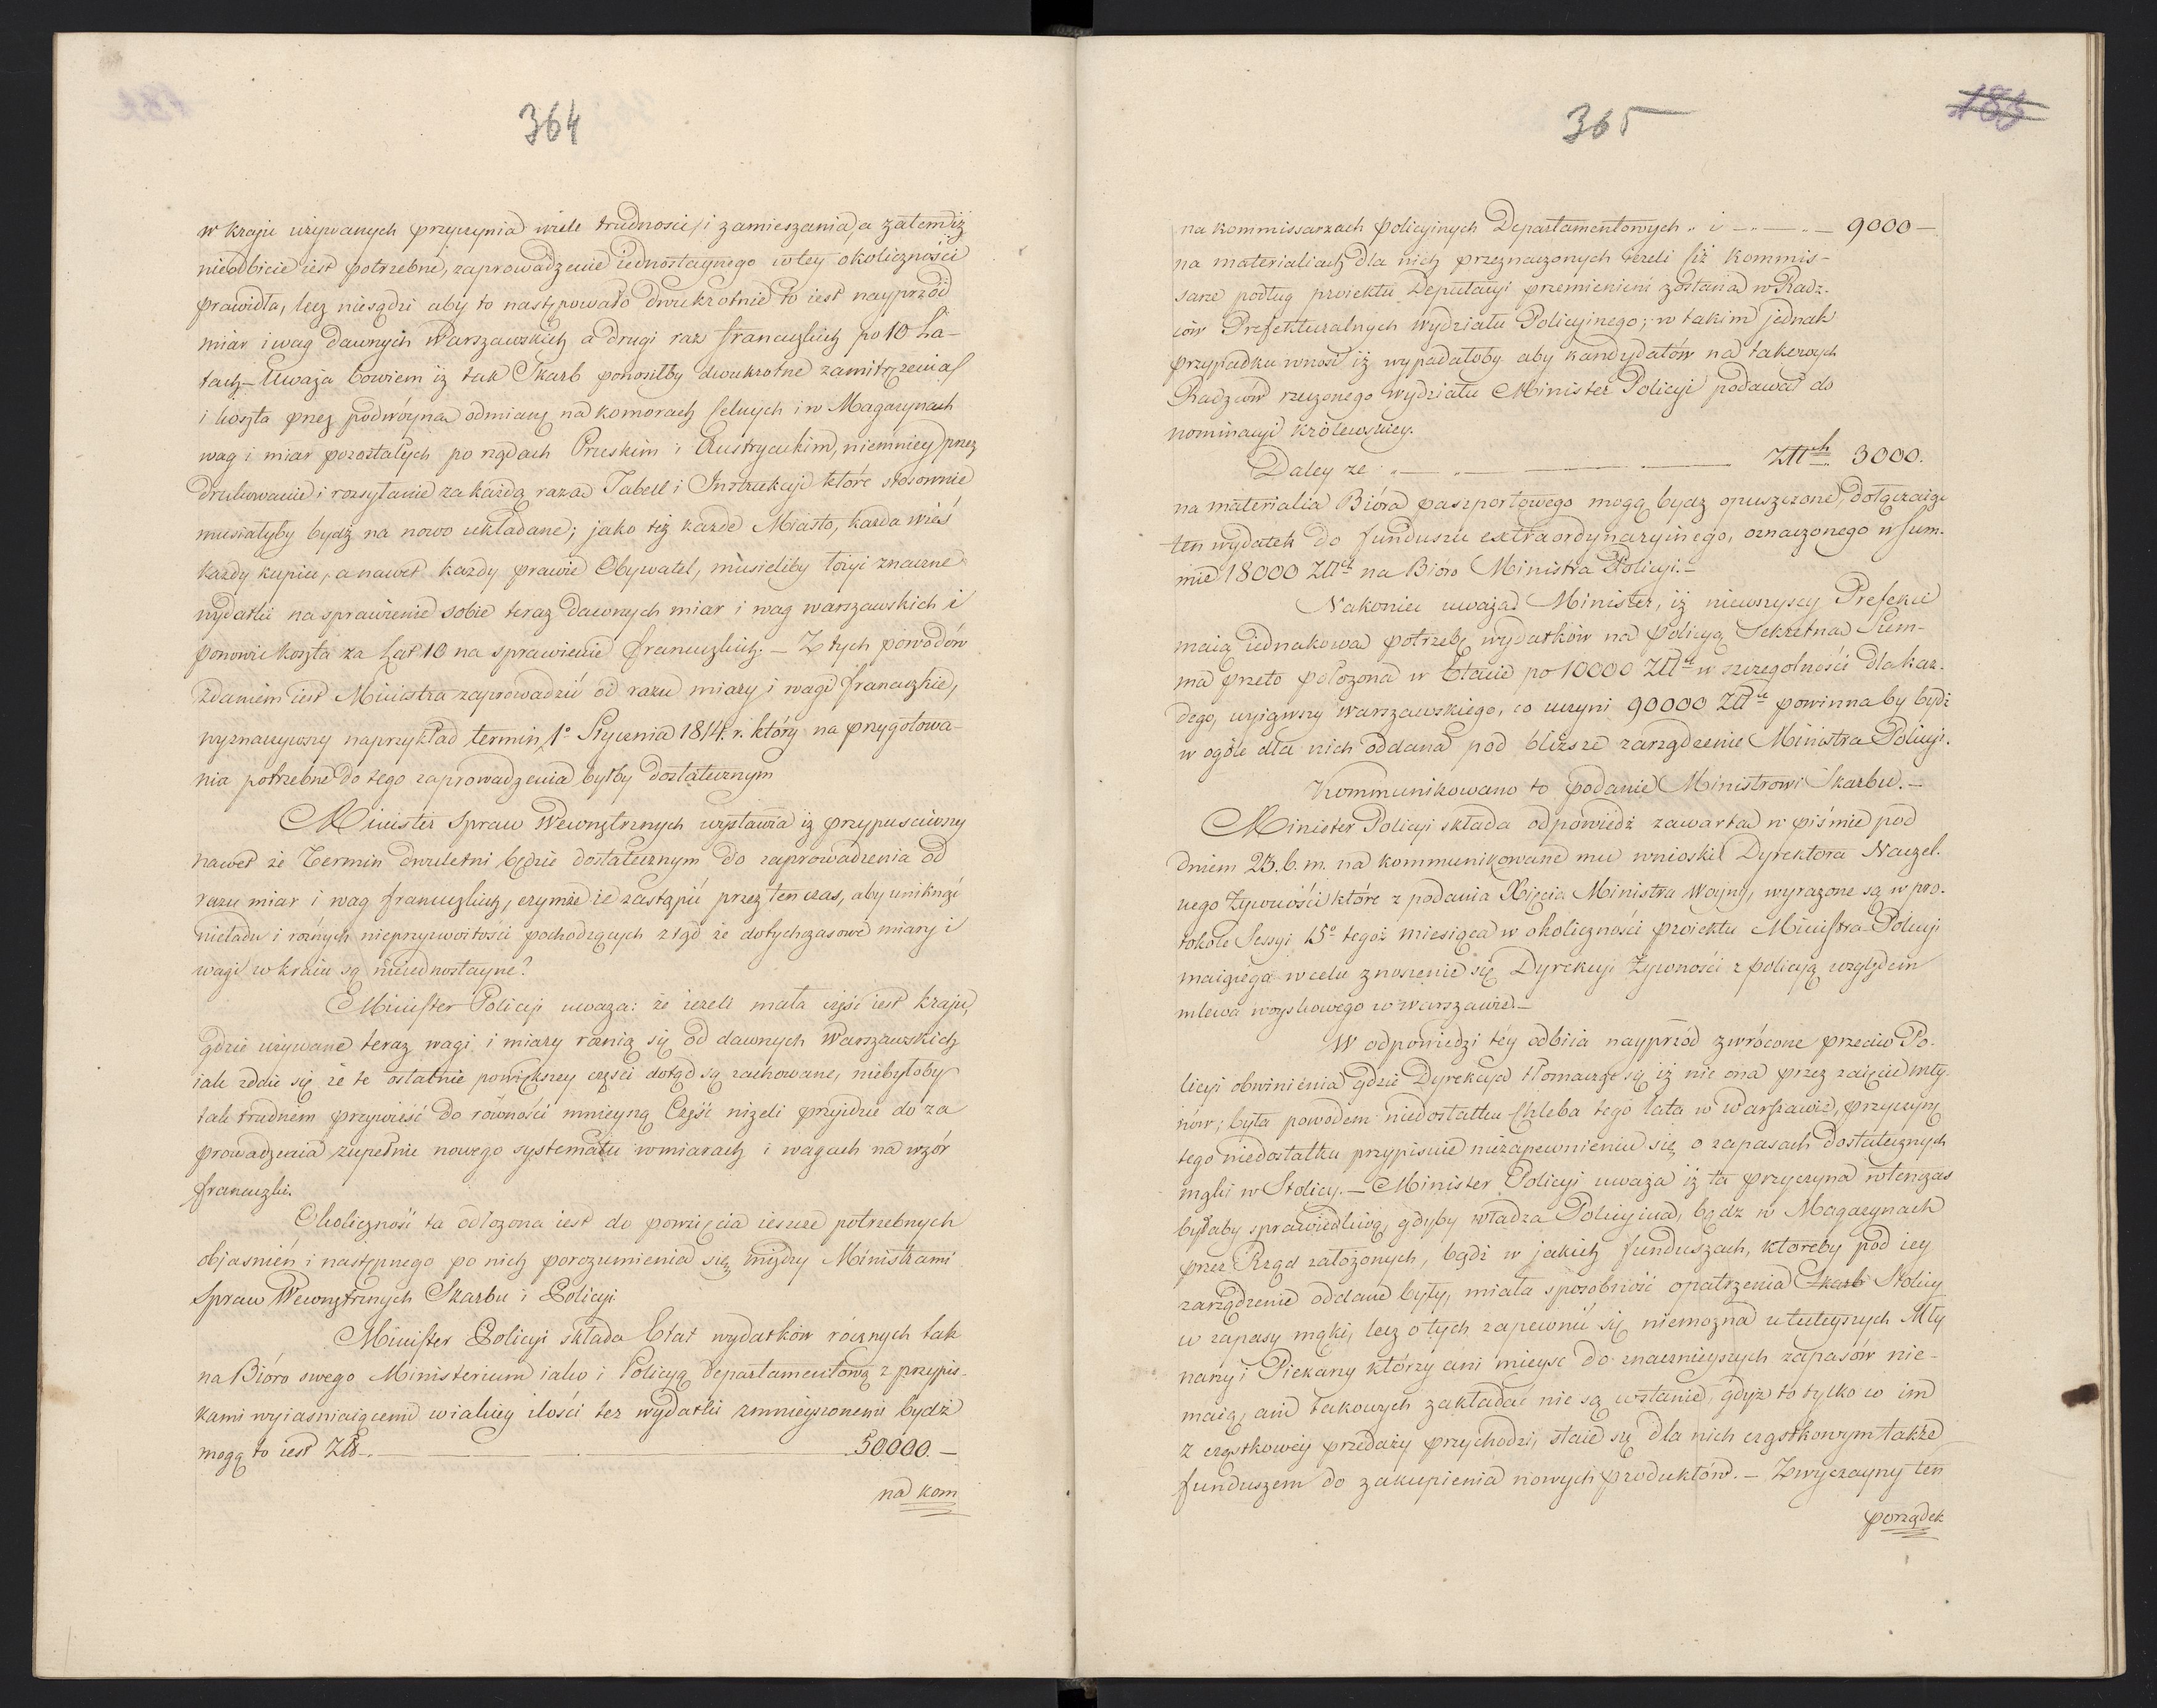 364
w kraju używanych przyczynia wiele trudności, i zamieszania, a zatem iż
nieodbicie iest potrzebne, zaprowadzenie iednostaynego w tey okoliczności
prawidła, lecz niesądzi aby to następowało dwukrotnie to iest nayprzód
miar i wag dawnych Warszawskich a drugi raz francuzkich po 10 La-
tach – Uważa bowiem iż tak Skarb ponosiłby dwukrotne zamitrężenia
i koszta przez podwóyna odmianę na komorach celnych i w Magazynach
wag i miar pozostałych po rządach Pruskim i Austryackim, niemniey przez
drukowanie i rozsyłanie za każdą razą Tabell i Instrukcji które stosownie
musiałyby bydź na nowo układane; jako też każde Miasto, każda wieś
każdy kupiec, a nawet każdy prawie Obywatel, musieliby łożyć znaczne
wydatki na sprawienie sobie teraz dawnych miar i wag warszawskich i
ponowić koszta za Lat 10 na sprawienie francuzkich. – Z tych powodów
zdaniem iest Ministra zaprowadzić od razu miary i wagi francuzkie,
wyznaczywszy naprzykład termin 1º Stycznia 1814. r. który na przygotowa-
nia potrzebne do tego zaprowadzenia byłby dostatecznym
Minister Spraw Wewnętrznych wystawia iż przypuściwszy
nawet że Termin dwuletni będzie dostatecznym do zaprowadzenia od
razu miar i wag francuzkich, czymże ie zastąpić przez ten czas, aby uniknąć
nieładu i rożnych nieprzyzwoitości pochodzących ztąd że dotychczasowe miary i
wagi w kraiu są nieiednostayne?
Minister Policyi uważa: że ieżeli mała część iest kraju,
gdzie używane teraz wagi i miary rożnią się od dawnych Warszawskich
iak zdaie się że te ostatnie powiększey części dotąd są zachowane, niebyłoby
tak trudnem przywieść do równości mnieyszą Część niżeli przyidzie do za
prowadzenia zupełnie nowego systematu w miarach i wagach na wzór
francuzki.
Okoliczność ta odłożona iest do powzięcia ieszcze potrzebnych
objaśnień i następnego po nich porozumienia się, między Ministrami
Spraw Wewnętrznych Skarbu i Policyi
Minister Policyi składa Etat wydatków rocznych tak
na Bióro swego Ministerium iako i Policyą departamentową z przypis-
kami wyiaśniaiącemi w iakiey ilości też wydatki zmnieyszonemi bydź
mogą to iest Złł –. 50.000. –
na kom
365
183
na kommissarzach policyinych Departamentowych .. i 9000 –
na materialiach dla nich przeznaczonych ieżeli ciż kommis-
sarze podług proiektu Deputacyi przemienieni zostania w Radz-
ców Prefekturalnych wydziału Policyinego; w takim jednak
przypadku wnosi iż wypadałoby aby kandydatów na takowych
Radzców rzeczonego wydziału Minister Policyi podawał do
nominacyi królewskiey.
Daley ze Złłch 3000.
na materialia Bióra paszportowego mogą bydz opuszczone, dołączaiąc
ten wydatek do funduszu extraordynaryinego, oznaczonego w sum-
mie 18000 Złłch na Bióro Ministra Policyi. –
Nakoniec uważa Minister, iż niewszyscy Prefekci
maią iednakowa potrzebę wydatków na Policyą Sekretna Sum-
ma przeto położona w Etacie po 10000 Złłch w szczegolności dla każ-
dego, wyiąwszy Warszawskiego, co uczyni 90000 Złłch powinna by bydź
w ogóle dla nich oddana pod bliższe zarządzenie Ministra Policyi.
Kommunikowano to podanie Ministrowi Skarbu. –
Minister Policyi składa odpowiedź zawartą w piśmie pod
dniem 23. b. m. na kommunikowane mu wnioski Dyrektora Naczel-
nego Żywności które z podania Xięcia Ministra Woyny, wyrażone są w pro-
tokole Sessyi 15º tegoż miesiąca w okoliczności proiektu Ministra Policyi
maiącego w celu znoszenie się Dyrekcyi Żywności z policyą względem
mlewa woyskowego w Warszawie. –
W odpowiedzi téy odbiia nayprzód zwrócone przeciw Po-
licyi obwinienia gdzie Dyrekcya tłomaczy się iż nie ona przez zaięcie mły-
nów, była powodem niedostatku Chleba tego lata w Warszawie, przyczynę
tego niedostatku przypisuie niezapewnieniu się o zapasach dostatecznych
mąki w Stolicy. – Minister Policyi uważa iż ta przyczyna wtenczas
byłaby sprawiedliwą, gdyby władza Policyina, bądz w Magazynach
przez Rząd założonych, bądź w jakich funduszach, któreby pod iey
zarządzenie oddane były, miała sposobność opatrzenia Skarb Stolicy
w zapasy mąki, lecz o tych zapewnić się niemożna u tuteyszych Mły
narzy i Piekarzy którzy ani mieysc do znacznieyszych zapasów nie-
maią, ani takowych zakładać nie są w stanie, gdyż to tylko co im
z cząstkowéy przedaży przychodzi, staie się dla nich cząstkowym także
funduszem do zakupienia nowych produktów. – Zwyczayny ten
porządek